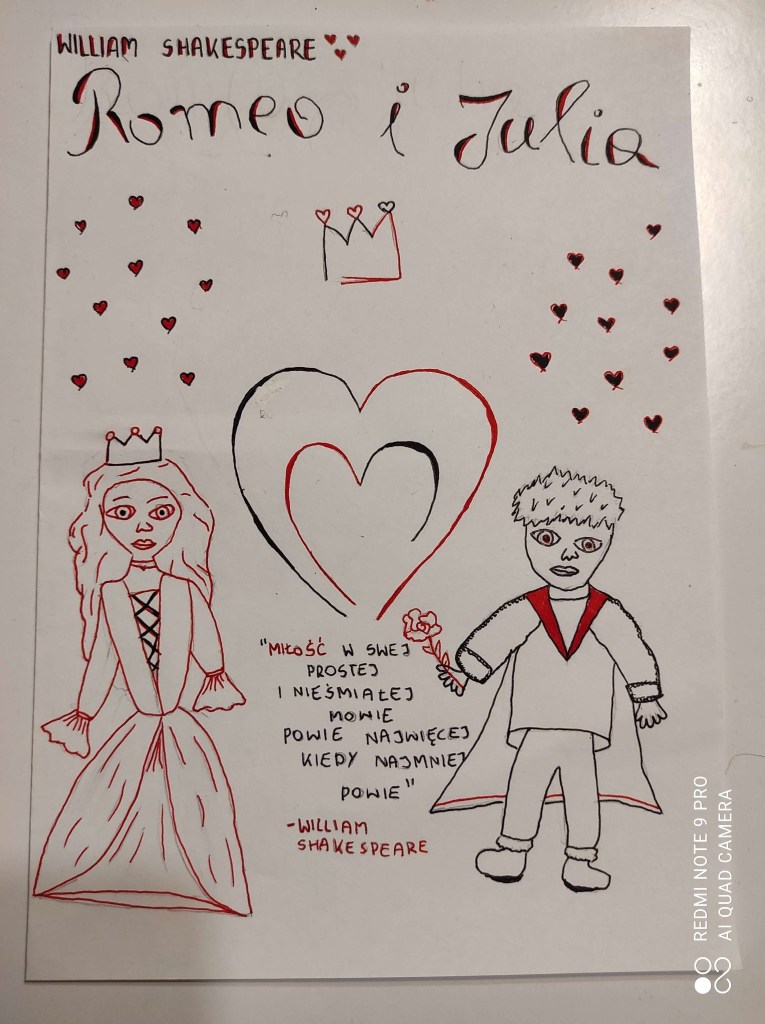 WILLIAM SHAKESPEARE
Romeo i Julia
"MIŁOŚĆ W SWEJ
PROSTEJ
I NIEŚMIAŁEJ
MOWIE
POWIE NAJWIĘCEJ
KIEDY NAJMNIEJ
POWIE"
-WILLIAM
SHAKESPEARE
REDMI NOTE 9 PRO
AI QUAD CAMERA